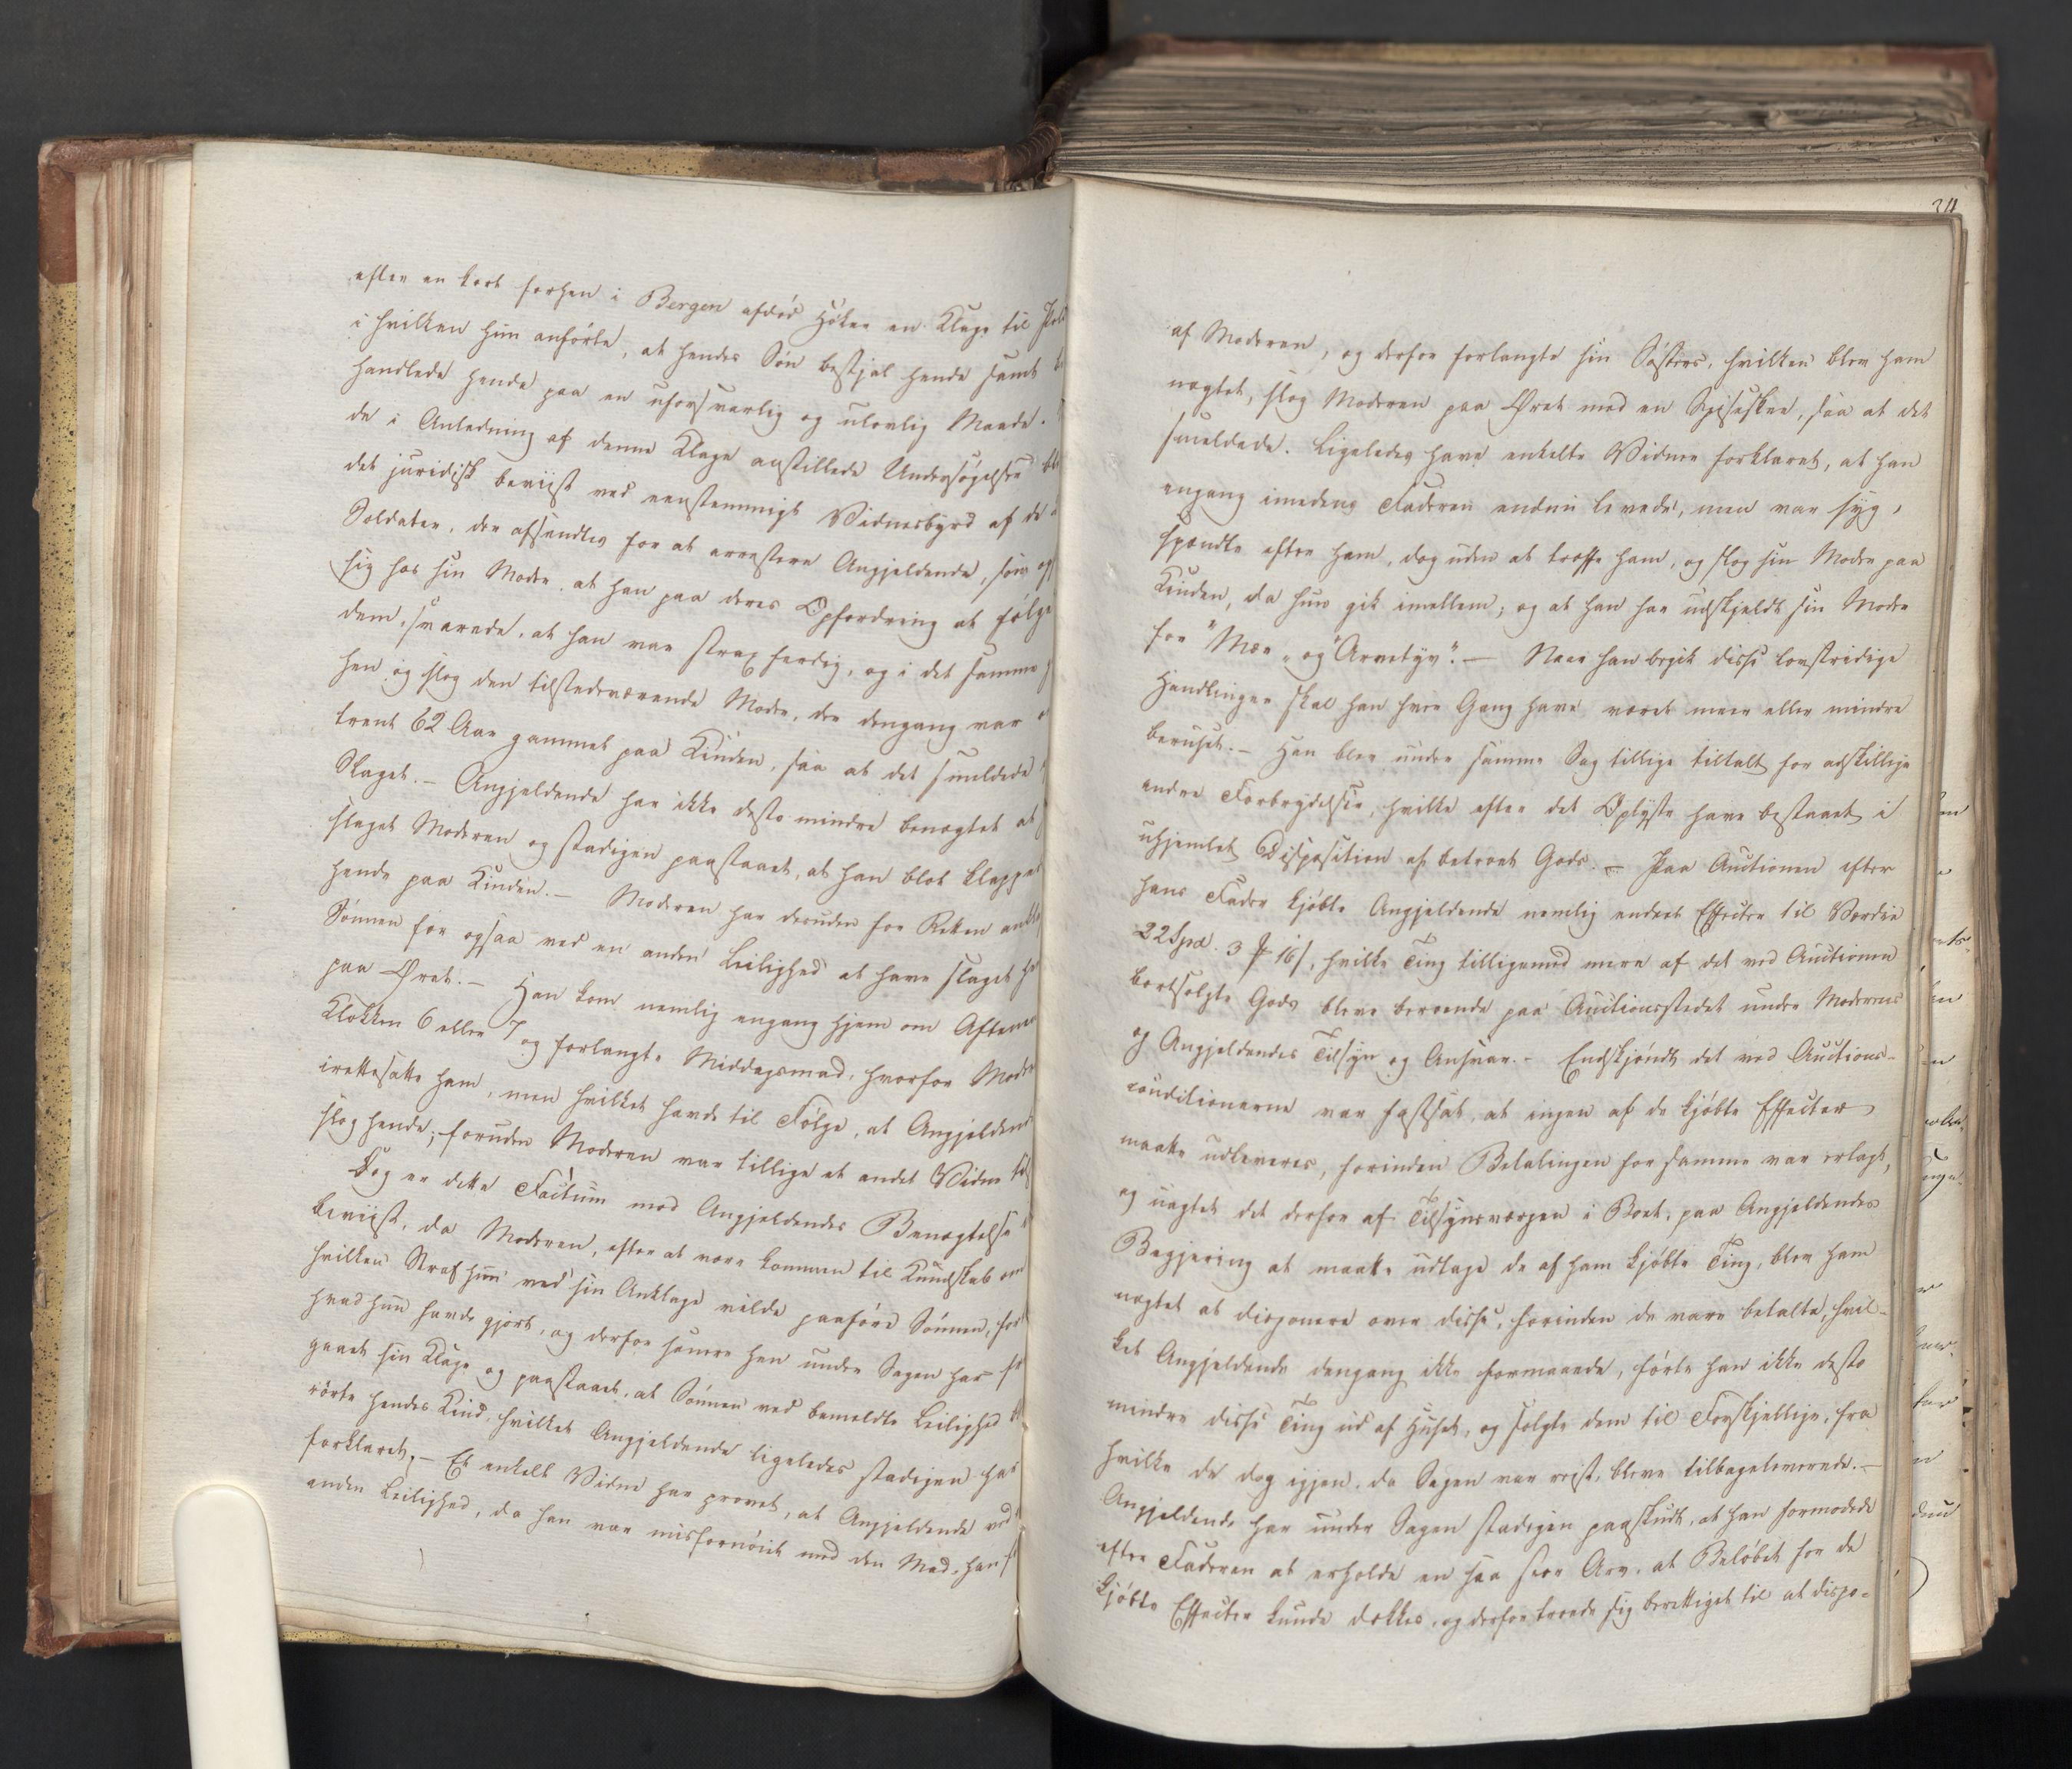 efter en kort forhen i Bergen afdød Høker en Klage til Poli
i hvilken hun anførte, at hendes Søn bestjal hende samt be
handlede hende paa en uforsvarlig og ulovlig Maade.
de i Anledning af denne Klage anstillede Undersøgelser ble
det juridisk beviist ved eenstemmigt Vidnesbyrd af de
Soldater, der afsendtes for at arrestere Angjeldende, som op
sig hos sin Moder, at han paa deres Opfordring at følge
dem, svarede, at han var strax færdig, og i det samme g
hen og slog den tilstedeværende Moder, der dengang var o
trent 62 Aar gammel paa Kinden, saa at det smeldede
Slaget. – Angjeldende har ikke desto mindre benægtet at
slaget Moderen og stadigen paastaaet, at han blot klappe
hende paa Kinden. – Moderen har desuden for Retten ankla
Sønnen for ogsaa ved en anden Leilighed at have slaget he
paa Øret. – Han kom nemlig engang hjem om Aftene
Klokken 6 eller 7 og forlangte Middagsmad, hvorfor Moder
irettesatte ham, men hvilket havde til Følge, at Angjeldend
slog hende; foruden Moderen var tillige et andet Vidne til
Dog er dette Factum mod Angjeldendes Benægtelse
beviist, da Moderen, efter at være kommen til Kundskab om
hvilken Straf hun ved sin Anklage vilde paaføre Sønnen, for
hvad hun havde gjort, og derfor senere hen under Sagen har fr
gaaet sin Klage og paastaaet, at Sønnen ved bemeldte Leilighed
rørte hendes Kind, hvilket Angjeldende ligeledes stadigen har
forklaret. – Et enkelt Vidne har provet, at Angjeldende ved
anden Leilighed, da han var misfornøiet med den Mad, han f
24
af Moderen, og derfor forlangte sin Søsters, hvilken blev ham
nægtet, slog Moderen paa Øret med en Spiseskee, saa at det
smeldede. Ligeledes have enkelte Vidner forklaret, at han
engang imedens Faderen endnu levede, men var syg,
spændte efter ham, dog uden at træffe ham, og slog sin Moder paa
Kinden, da hun gik imellem; og at han har udskjeldt sin Moder
for "Mær" og "Arvetyv". – Naar han begik disse lovstridige
Handlinger skal han hver Gang have været meer eller mindre
beruset. – Han blev under samme Sag tillige tiltalt for adskillige
andre Forbrydelser, hvilke efter det Oplyste have bestaaet i
uhjemlet Disposition af betroet Gods. – Paa Auctionen efter
hans Fader kjøbte Angjeldende nemlig endeel Effecter til Værdie
22 Spd. 3 ₰ 16 s, hvilke Ting tilligemed mere af det ved Auctionen
bortsolgte Gods bleve beroende paa Auctionsstedet under Moderens
og Angjeldendes Tilsyn og Ansvar. – Endskjøndt det ved Auctions-
conditionerne var fastsat, at ingen af de kjøbte Effecter
maatte udleveres, forinden Betalingen for samme var erlagt,
og uagtet det derfor af Tilsynsværgen i Boet, paa Angjeldendes
Begjering at maatte udtage de af ham kjøbte Ting, blev ham
nægtet at disponere over disse, forinden de vare betalte, hvil-
ket Angjeldende dengang ikke formaaede, førte han ikke desto
mindre disse Ting ud af Huset, og solgte dem til Forskjellige, fra
hvilke de dog igjen, da Sagen var reist, bleve tilbageleverede. –
Angjeldende har under Sagen stadigen paaskudt, at han formodede
efter Faderen at erholde en saa stor Arv, at Beløbet for de
kjøbte Effecter kunde dækkes, og derfor troede sig berettiget til at dispo-